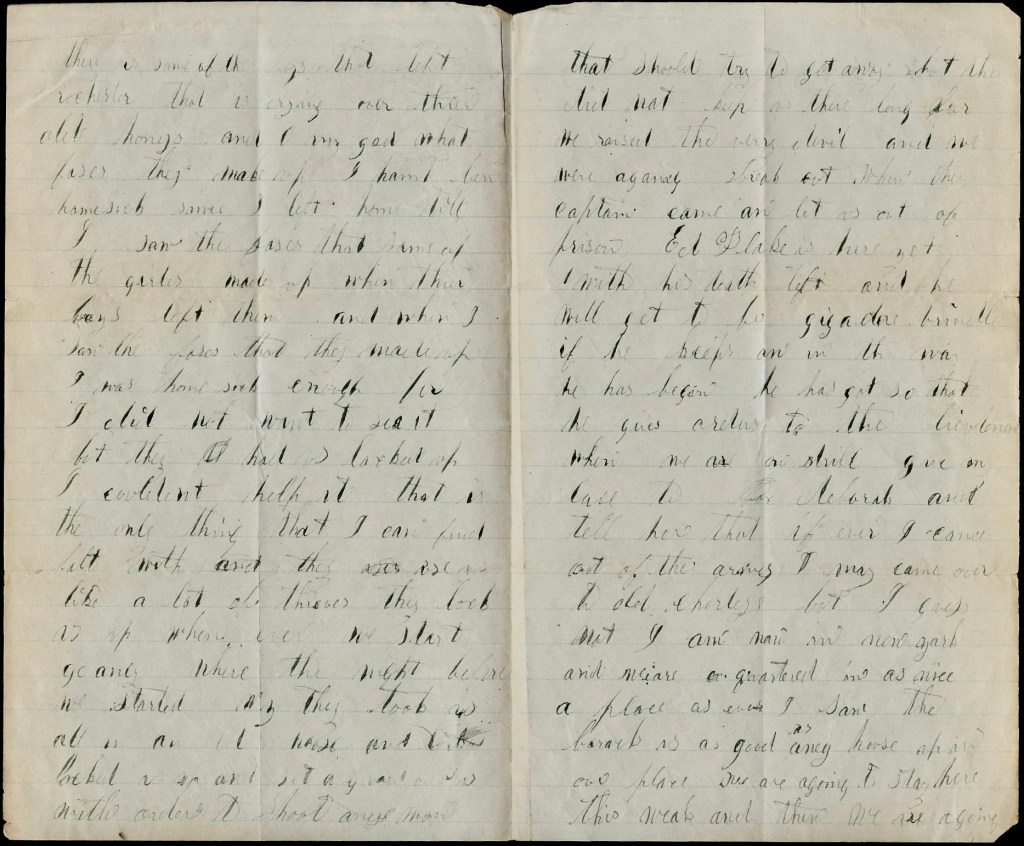 there is some of the   that left
rochester that is crying over thier
old honeys and O my god what
fases they make up I haint ben
homesick since I left home till
I saw the fases that some of
the gurles made up when thier
boys left them and when I
saw the fases that they made up
I was home sick enough for
I did not want to start
but they had us locked up
I couldent help it that is
the only thing that I can find
falt with and they use us
like a lot of thieves they lock
us up where ever we start
goaney where the night before
we started they took us
all in an old house and
locked us up and set a guard over us
with orders to shoot aney man
that should try to got away but they
did not keep us there long for
we raised the verre devil and we
were aganey to break out when the
captain came an let us out of
prison Ed Flake is here yet
with his death left and he
will get to be gigadore brindle
if he keeps on in the way
he has begun he has got so that
he gives orders to the lieutenant
when we are on drill give my
love to Deborah and
tell her that if ever I come
out of the armey I may come over
to old Charleys but I guess
not I am now in new york
and we are quartered in as nice
a place as ever I saw the
barack is as good as aney house up in
our place we are agoing to stay here
this weak and then we are agoing